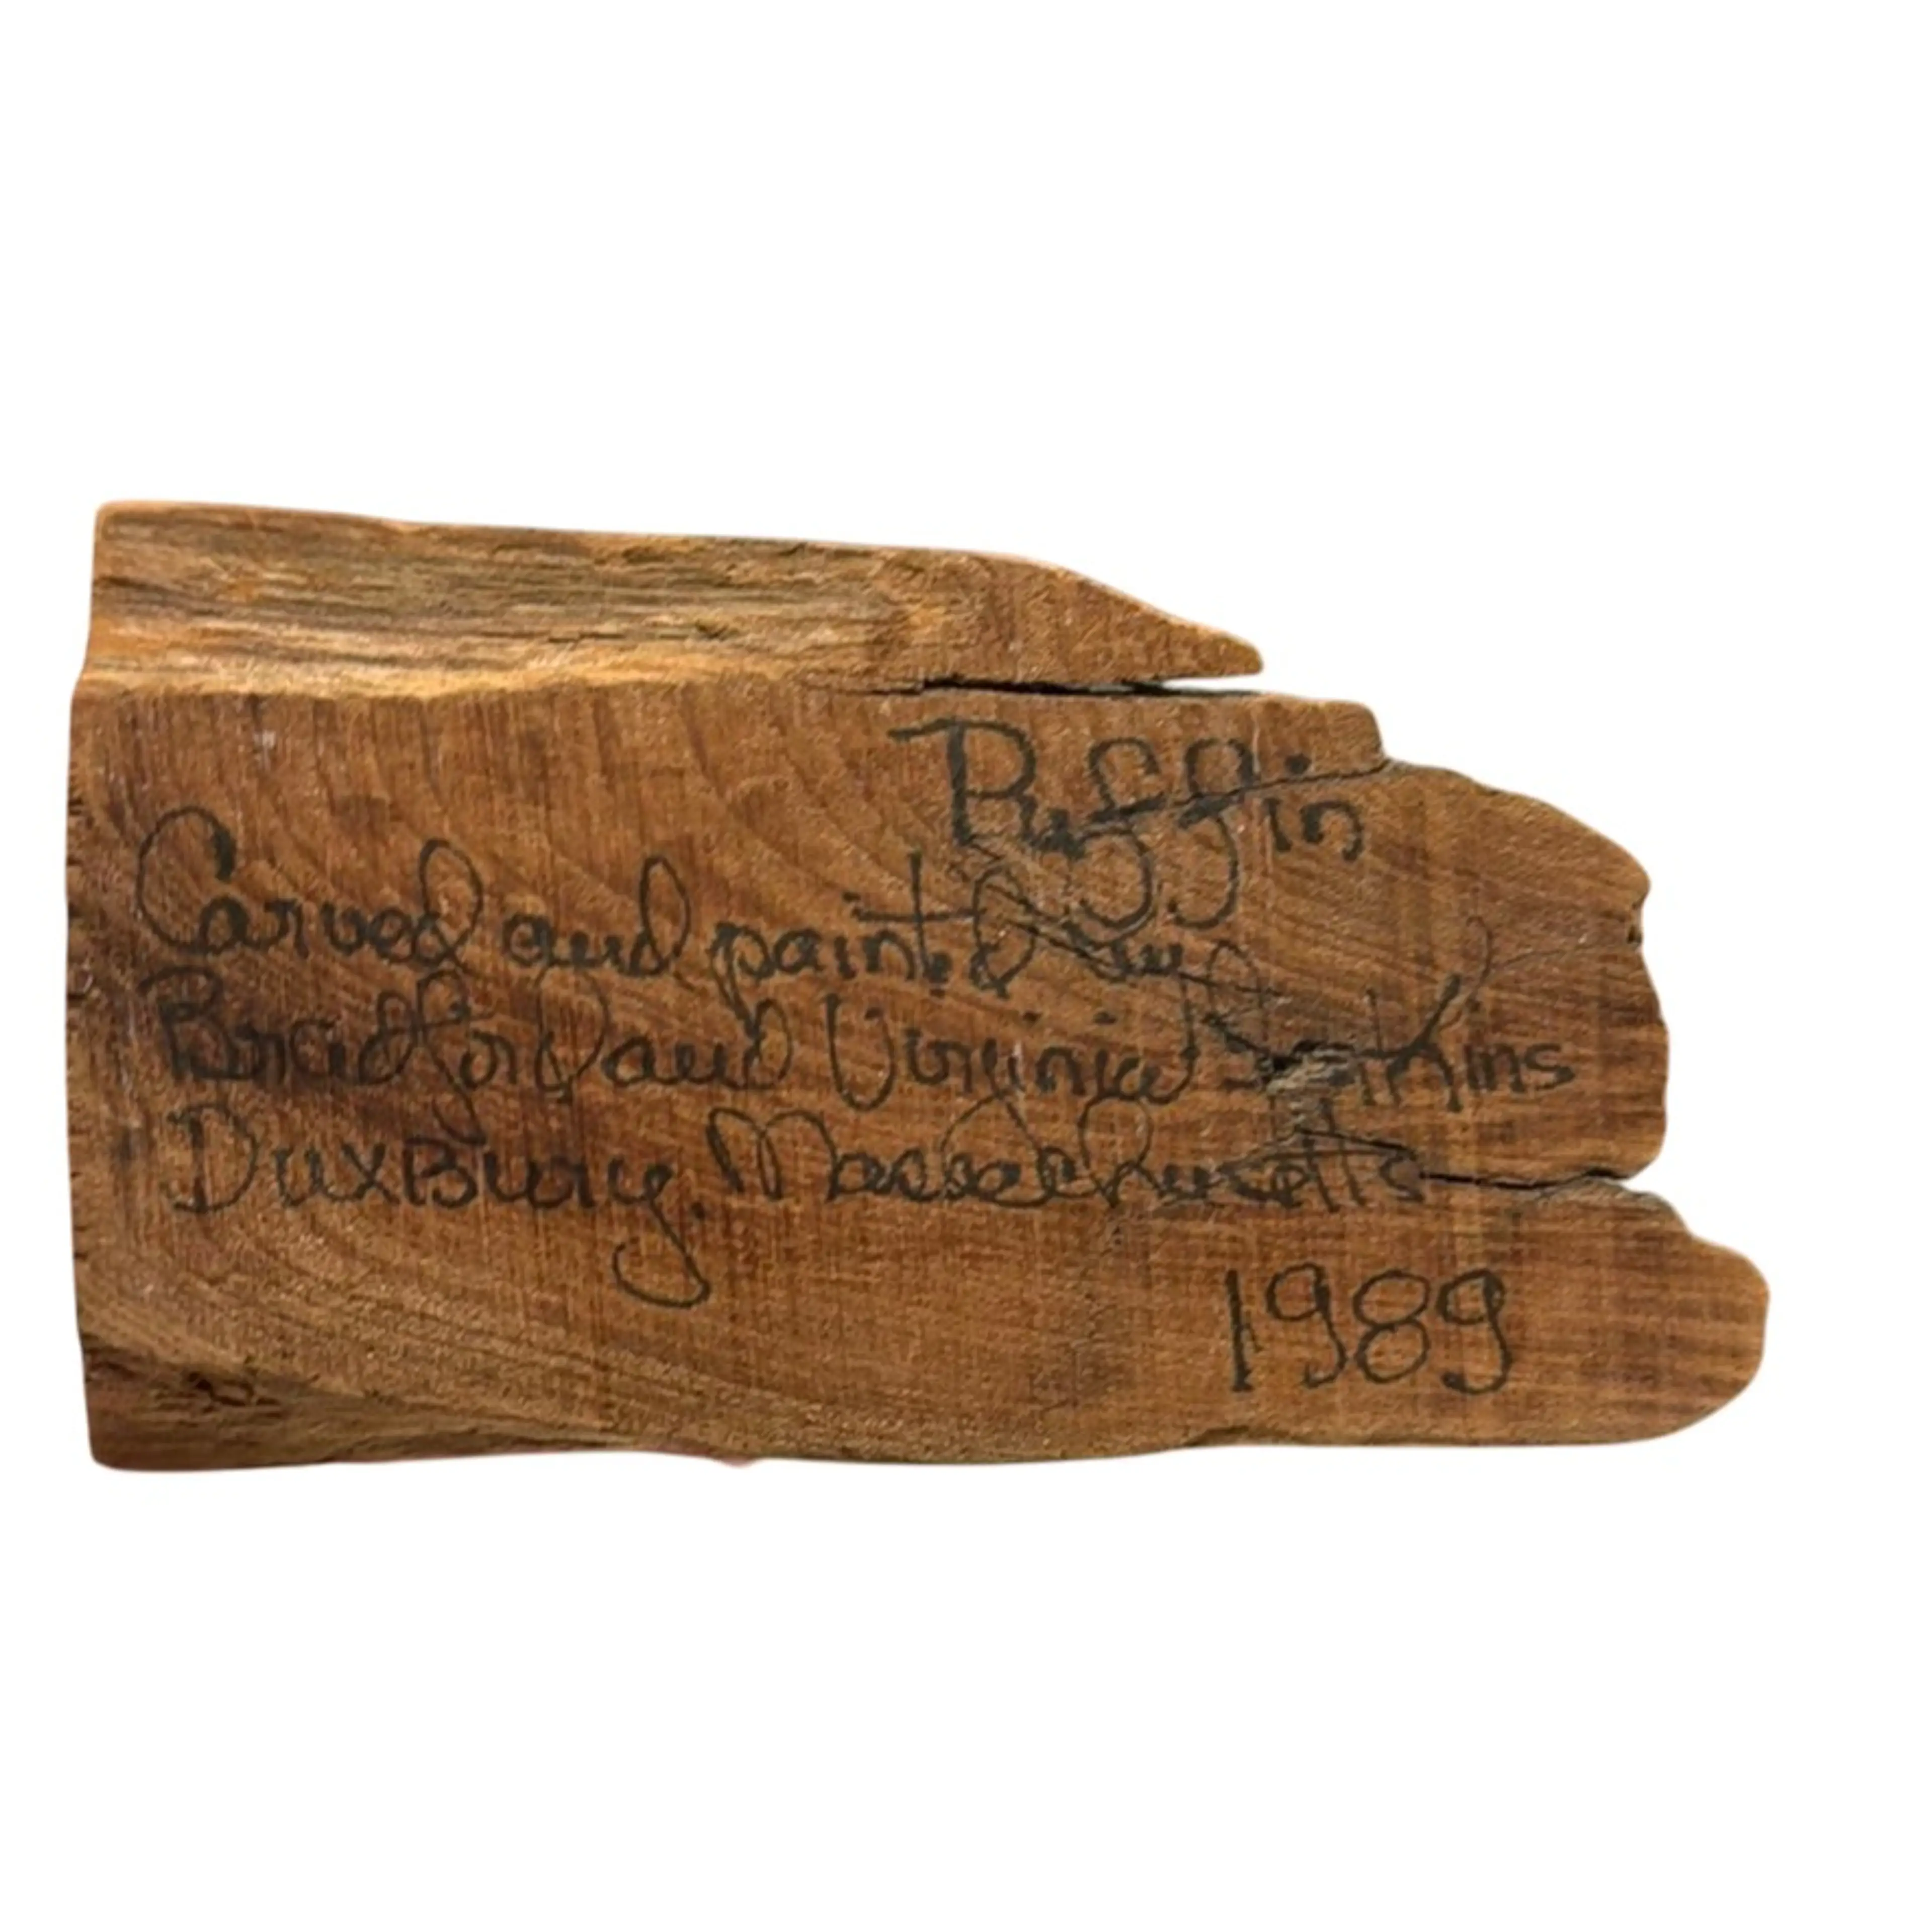 Puffin
Carved and painted by
Bradford and Virginia
DuxBury, Massachusetts
1989